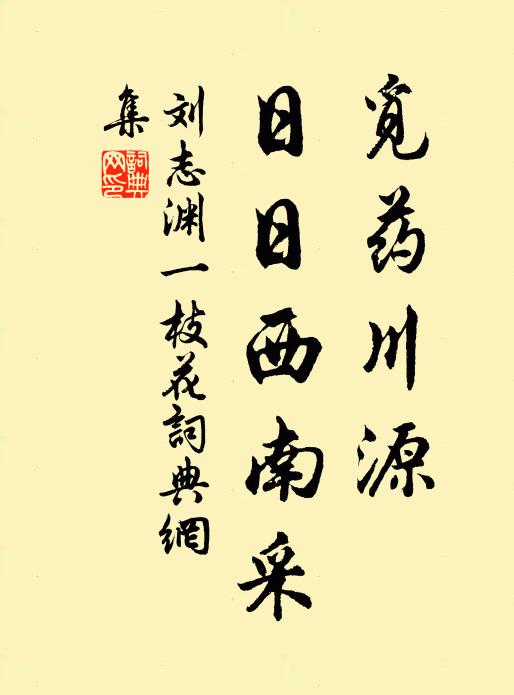 觅药川源
日日西南采
刘志渊一枝花詞典網
集
詞典
网印